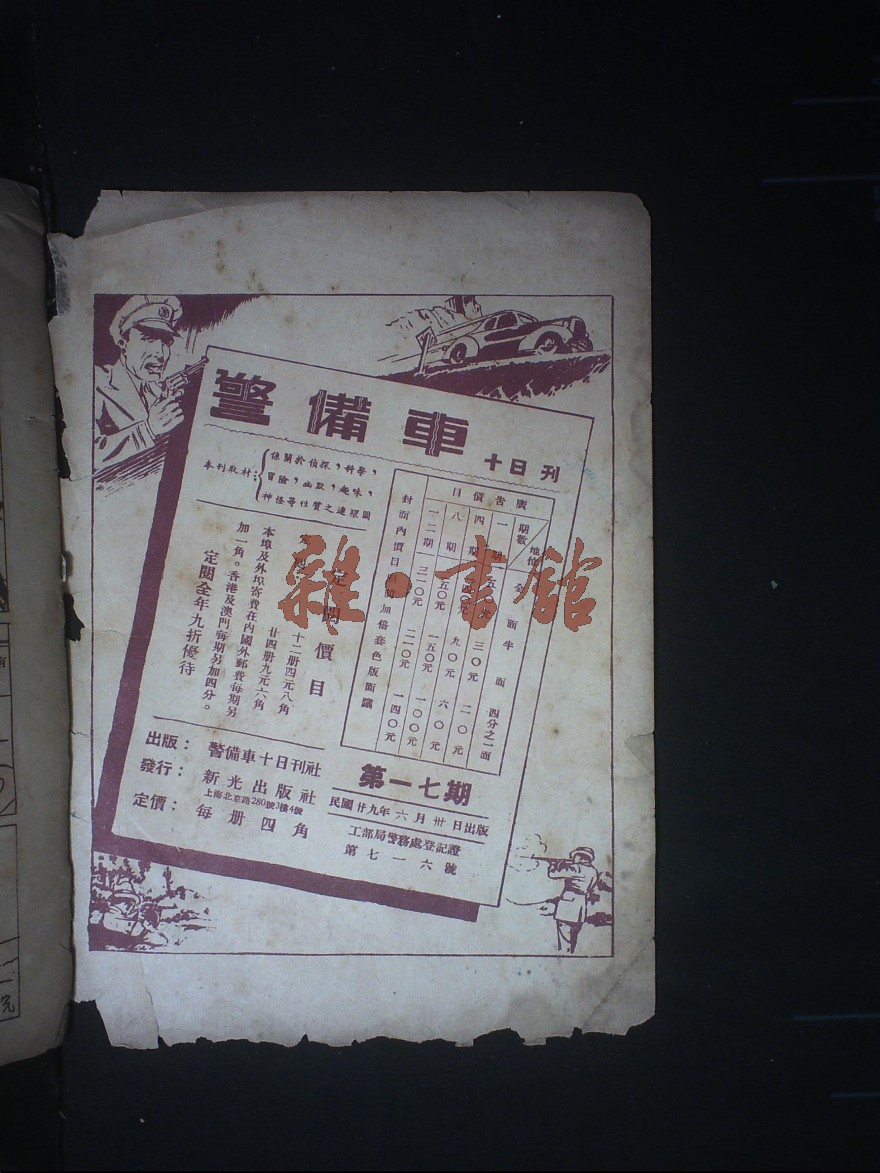 警備車 十日刊
本刊取材：
係關於偵探，科學，
冒險，幽默，趣味，
神怪等性質之連環圖
廣告價目
期數 地位 全面 半面 四分之一面
一期 三〇元 二〇元
四期 九〇元 六〇元
八期 一五〇元 一〇〇元
一二期 三二〇元 二二〇元 一四〇元
定閱價目
十二册四元八角
廿四册九元六角
本埠及外埠寄費在內國外郵費每期另
加一角。香港及澳門每期另加四分。
定閱全年九折優待
出版： 警備車十日刊社
發行： 新光出版社
上海北京路280號3樓4號
定價： 每册四角
第一七期
民國廿九年六月卅日出版
工部局警務處登記證
第七一六號
雜·書館